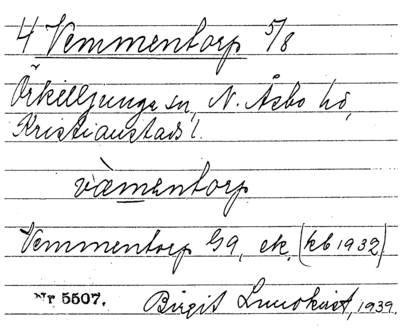 4 Vemmentorp 5/8
Örkelljunga sn, N. Åsbo hd,
Kristianstads l.
vàmentorp
Vemmentorp G9, ek. (kb 1932)
Nr 5507. Birgit Lundkvist, 1939.